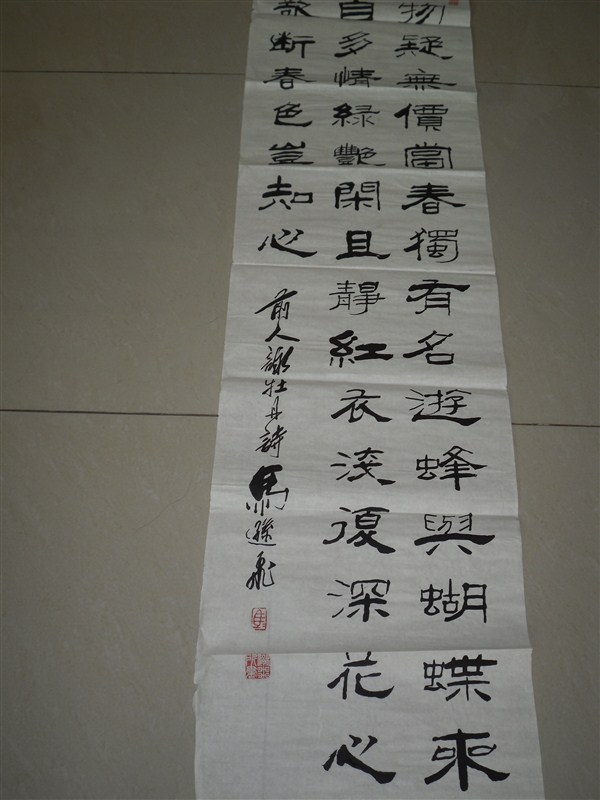 物疑無價當春獨有名遊蜂與蝴蝶來
自多情綠艷閑且靜紅衣淺復深花心
欲斷春色豈知心
前人詠牡丹詩 馬遜飛